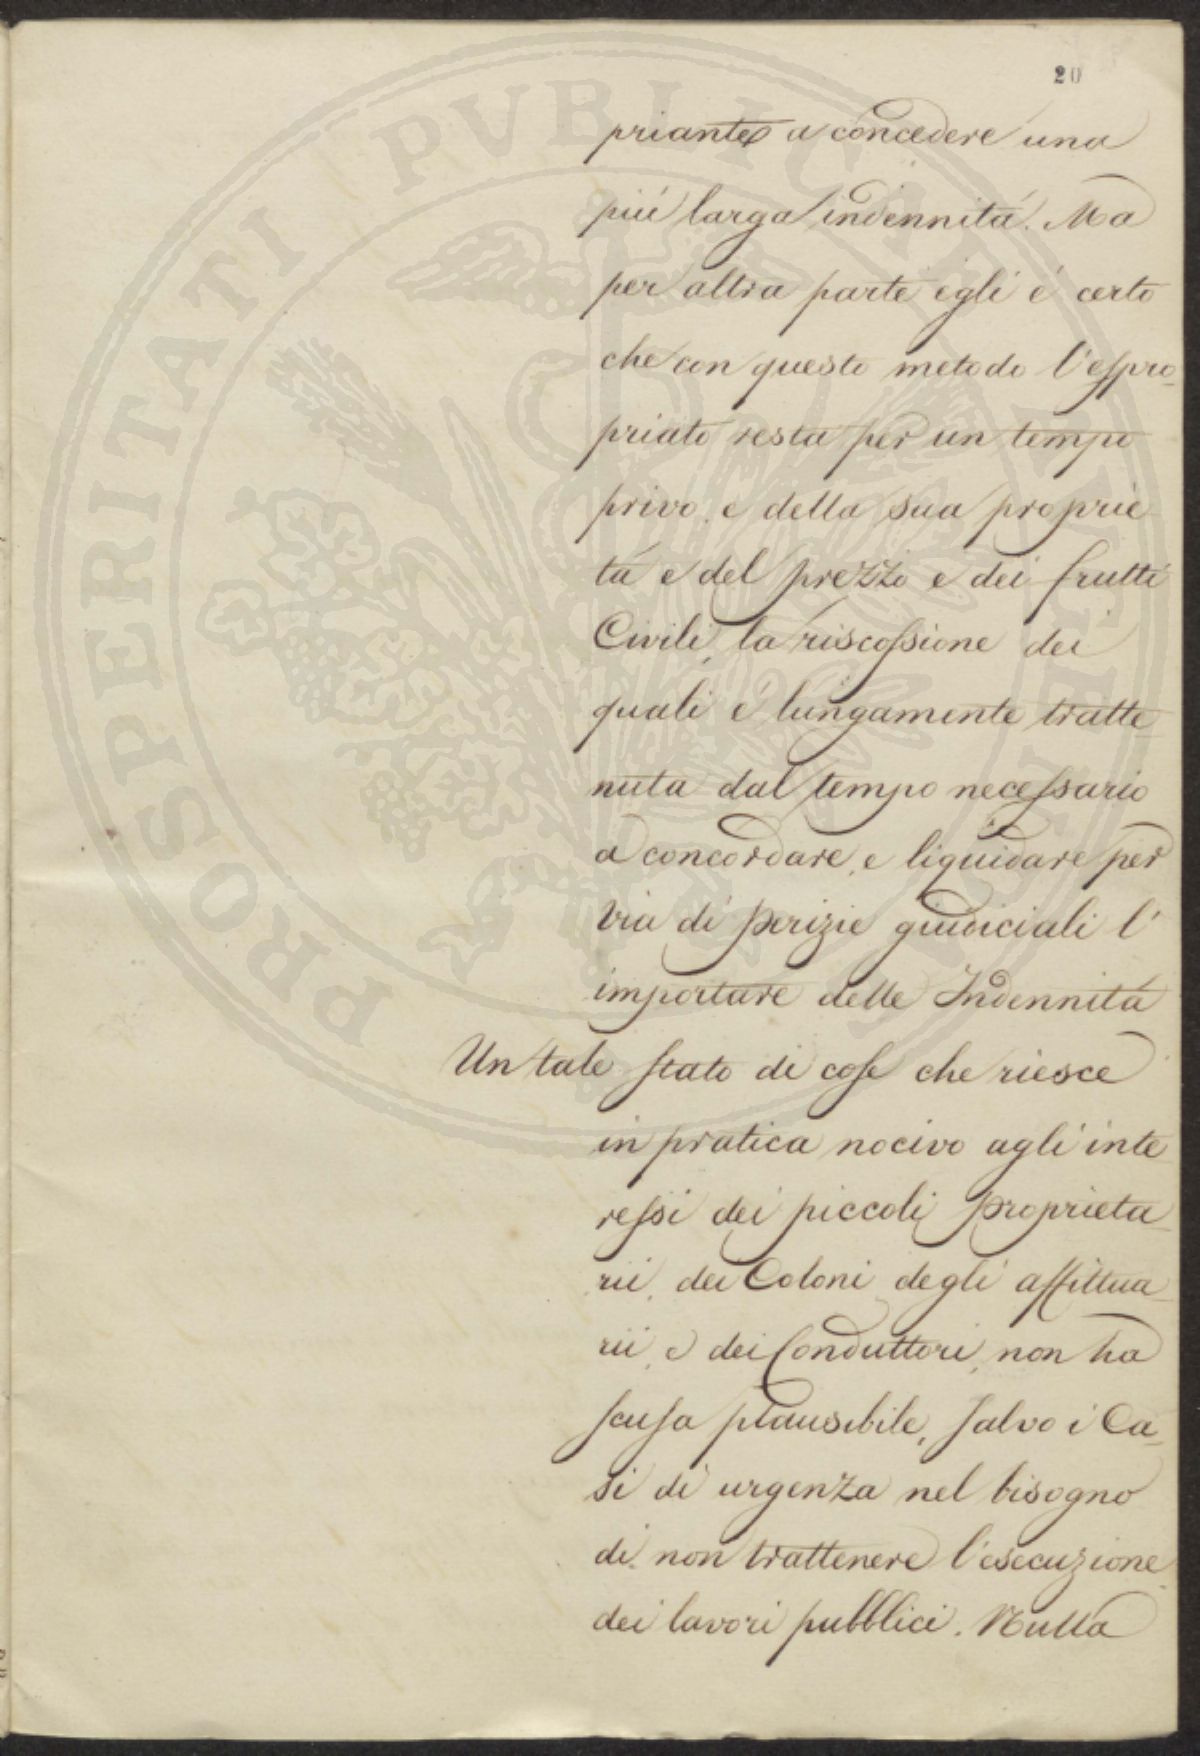 20
priante a concedere una
piú larga indennitá. Ma
per altra parte egli é certo
che con questo metodo l'espro-
priato resta per un tempo
privo, e della sua proprie
tá e del prezzo e dei frutti
Civili, la riscossione dei
quali é lungamente tratte
nuta dal tempo necessario
a concordare, e liquidare per
via di perizie giudiciali l'
importare delle Indennitá
Un tale stato di cose che riesce
in pratica nocivo agli inte
ressi dei piccoli proprieta-
rii, dei Coloni degli affittua-
rii, e dei Conduttori, non ha
scusa plausibile, salvo i Ca-
si di urgenza nel bisogno
di non trattenere l'esecuzione
dei lavori pubblici. Nulla
PROSPERITATI PVBLICAE AVGENDAE